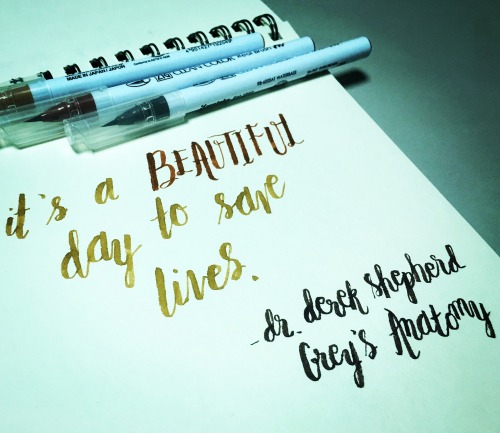 MADE IN JAPAN/JAPON
CLEAN COLOR
it's a BEAUTIFUL
day to save
lives.
-dr. derek shepherd
Grey's Anatomy